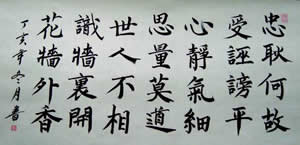 忠耿何故
受誣謗平
心靜氣細
思量莫道
世人不相
識牆裏開
花牆外香
丁亥年冬月書